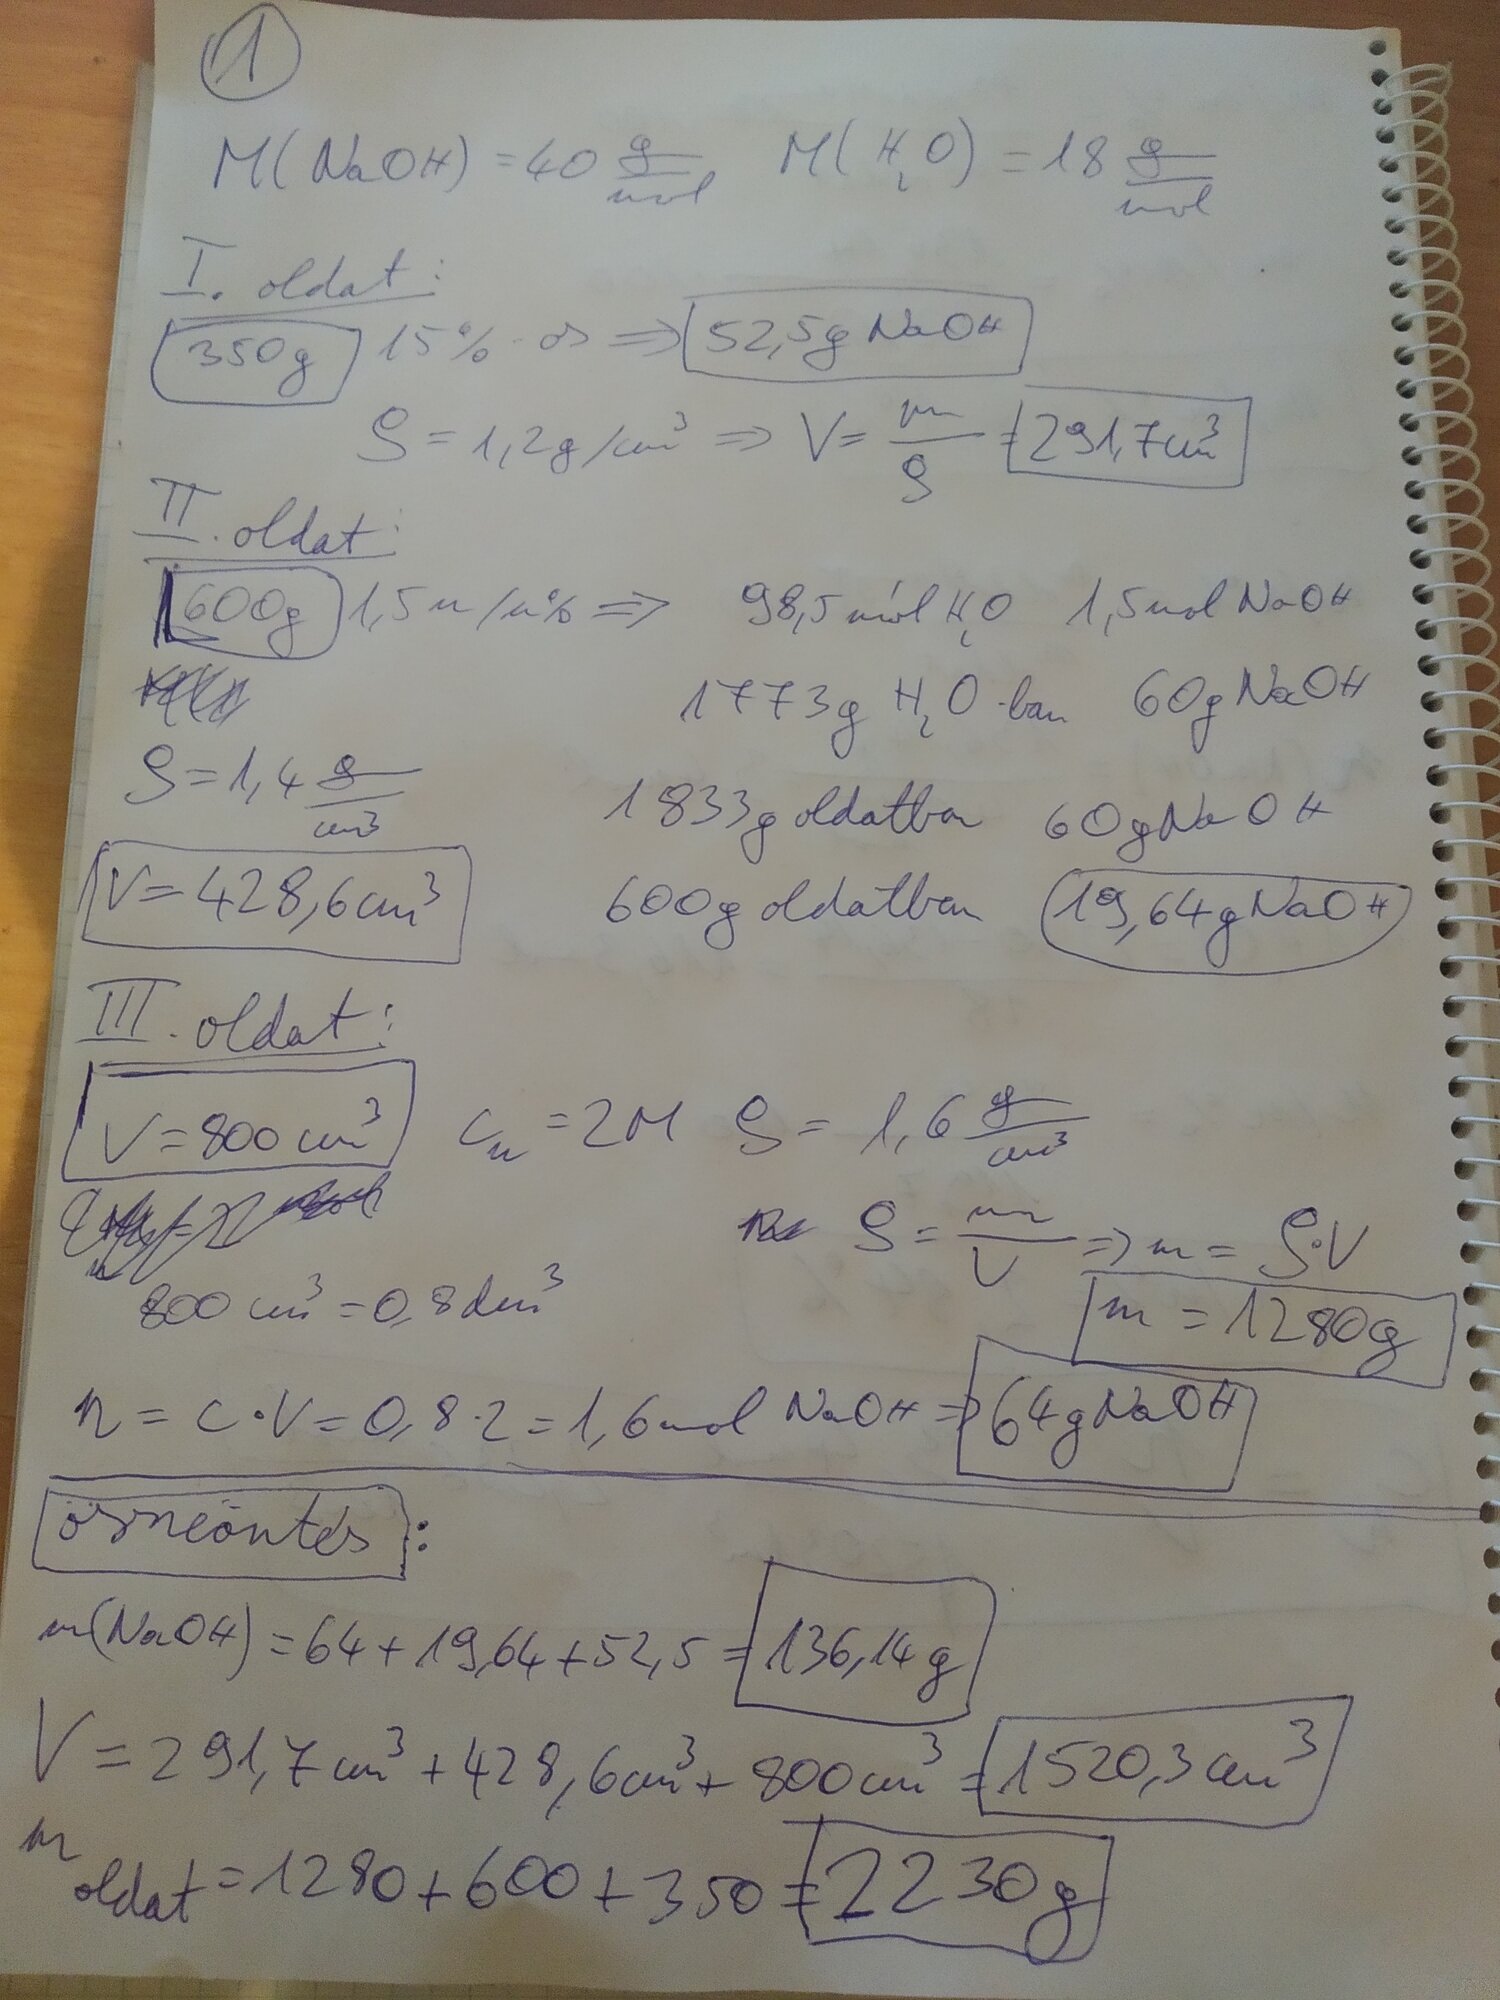 1
M(NaOH) = 40 g/mol, M(H₂O) = 18 g/mol
I. oldat:
350g 15%-os ⇒ 52,5g NaOH
ρ = 1,2g/cm³ ⇒ V = m/ρ = 291,7cm³
II. oldat:
600g 1,5 n/n% ⇒ 98,5 mól H₂O 1,5mol NaOH
1773g H₂O-ban 60g NaOH
ρ = 1,4 g/cm³
1833g oldatban 60g NaOH
V = 428,6cm³
600g oldatban 19,64g NaOH
III. oldat:
V = 800 cm³ cₙ = 2M ρ = 1,6 g/cm³
ρ = m/V ⇒ m = ρ·V
800 cm³ = 0,8 dm³
m = 1280g
n = c·V = 0,8·2 = 1,6mol NaOH ⇒ 64g NaOH
összeöntés:
m(NaOH) = 64 + 19,64 + 52,5 = 136,14g
V = 291,7cm³ + 428,6cm³ + 800cm³ = 1520,3cm³
m oldat = 1280 + 600 + 350 = 2230g